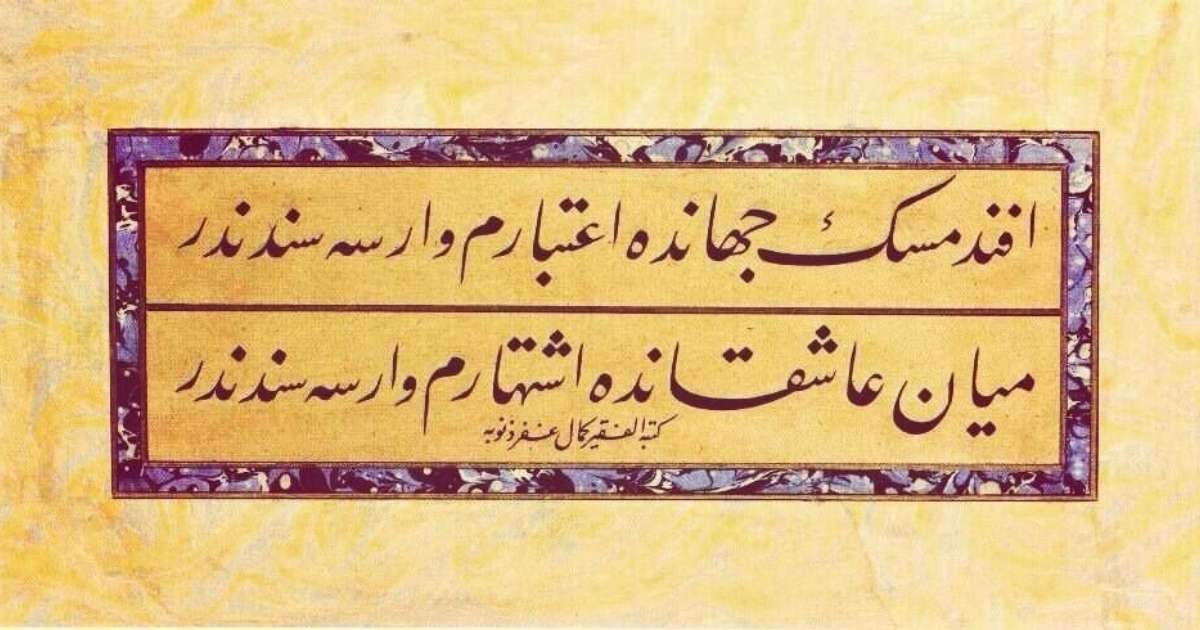 افندمسڭ جهانده اعتبارم وارسه سندندر
میان عاشقانده اشتهارم وارسه سندندر
كتبه الفقير كمال غفر ذنوبه